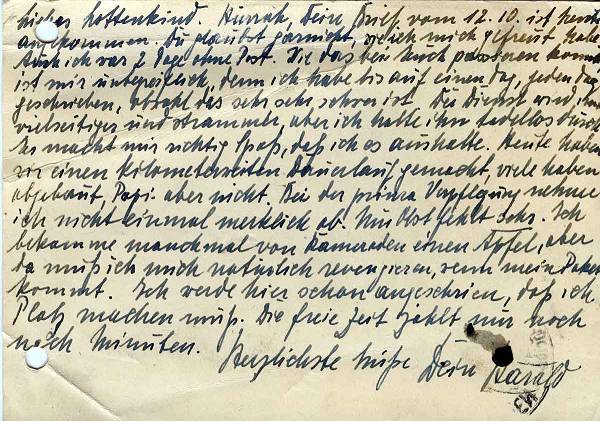 Liebes Lottenkind. Hurrah, Dein Brief vom 12.10. ist heute
angekommen. Du glaubst garnicht, wie ich mich gefreut habe.
Auch ich war 2 Tage ohne Post. Wie das bei Euch passieren konnte
ist mir unbegreiflich, denn ich habe bis auf einen Tag, jeden Tag
geschrieben, obwohl das sehr sehr schwer ist. Der Dienst wird immer
vielseitiger und strammer, aber ich halte ihn tadellos durch.
Es macht mir richtig Spaß, daß ich es aushalte. Heute haben
wir einen kilometerweiten Dauerlauf gemacht, viele haben
abgebaut, Papi aber nicht. Bei der prima Verpflegung nehme
ich nicht einmal merklich ab. Nur Obst fehlt sehr. Ich
bekomme manchmal von Kameraden einen Apfel, aber
da muß ich mich natürlich revengieren, wenn mein Paket
kommt. Ich werde hier schon angeschrien, daß ich
Platz machen muß. Die freie Zeit zählt nur noch
nach Minuten.
Herzlichste Küße Dein Harald